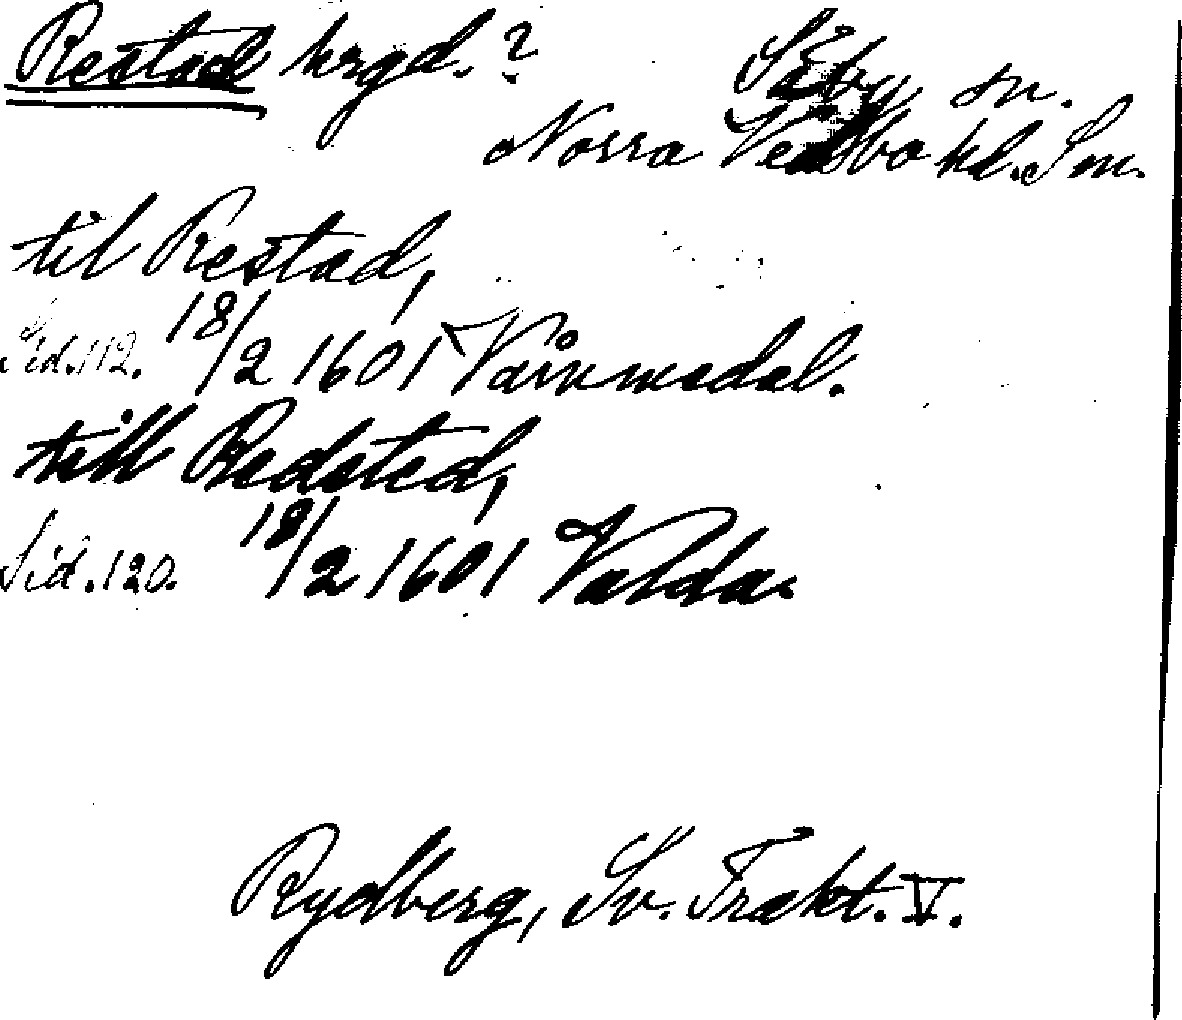 Restad hrgd.?
Säby sn.
Norra Vedbo hd. Sm.
til Restad,
Sid. 112. 18/2 1601 Vårnmedal.
till Redsted,
Sid. 120. 18/2 1601 Valda.
Rydberg, Sv. Trakt. V.